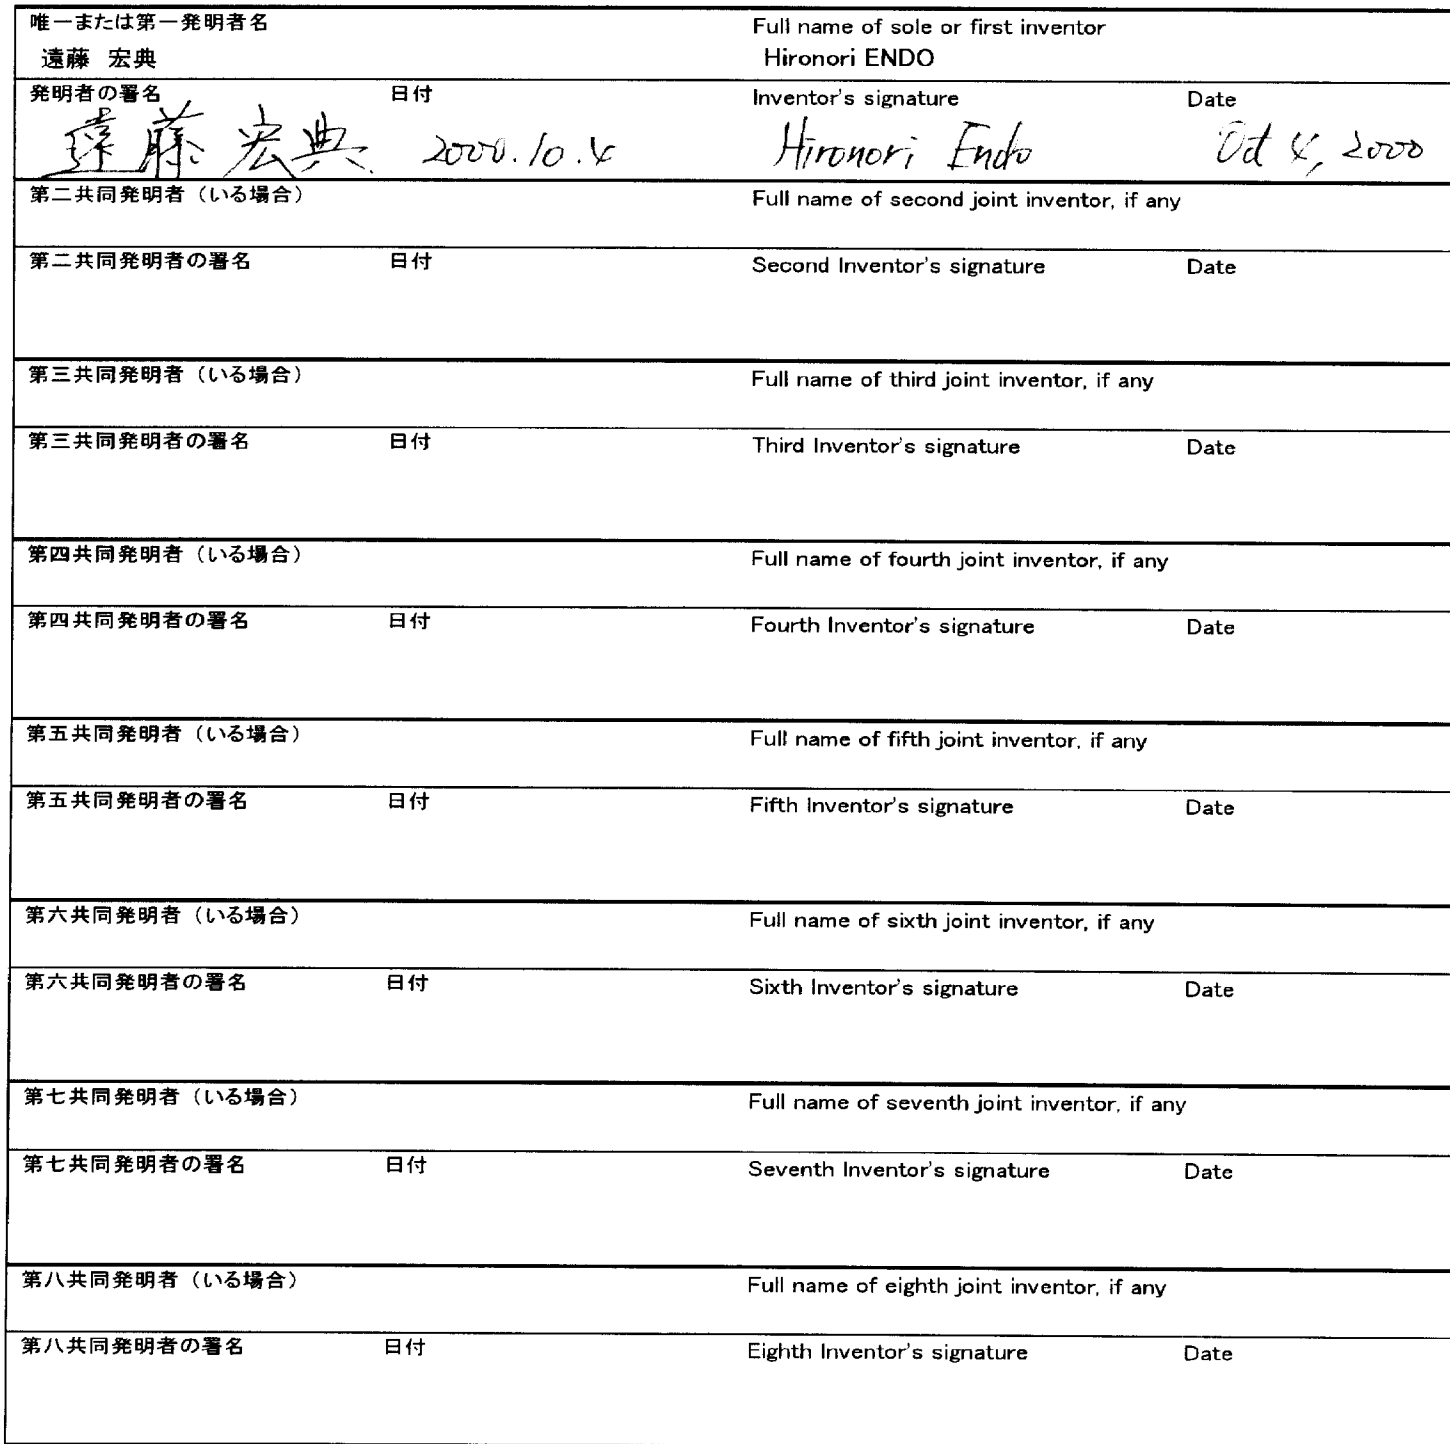 唯一または第一発明者名 Full name of sole or first inventor
遠藤 宏典 Hironori ENDO
発明者の署名 日付 Inventor's signature Date
遠藤 宏典 2000.10.4 Hironori Endo Oct 4, 2000
第二共同発明者（いる場合） Full name of second joint inventor, if any
第二共同発明者の署名 日付 Second Inventor's signature Date
第三共同発明者（いる場合） Full name of third joint inventor, if any
第三共同発明者の署名 日付 Third Inventor's signature Date
第四共同発明者（いる場合） Full name of fourth joint inventor, if any
第四共同発明者の署名 日付 Fourth Inventor's signature Date
第五共同発明者（いる場合） Full name of fifth joint inventor, if any
第五共同発明者の署名 日付 Fifth Inventor's signature Date
第六共同発明者（いる場合） Full name of sixth joint inventor, if any
第六共同発明者の署名 日付 Sixth Inventor's signature Date
第七共同発明者（いる場合） Full name of seventh joint inventor, if any
第七共同発明者の署名 日付 Seventh Inventor's signature Date
第八共同発明者（いる場合） Full name of eighth joint inventor, if any
第八共同発明者の署名 日付 Eighth Inventor's signature Date